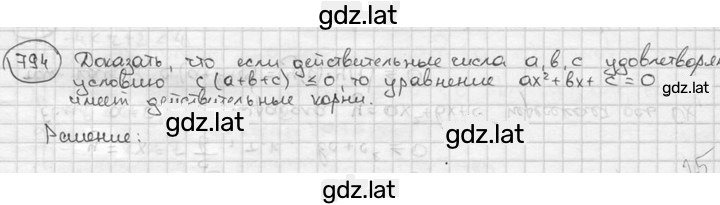 gdz.lat
794 Доказать, что если действительные числа a, b, c удовлетворя
условию c(a+b+c) ≤ 0, то уравнение ax²+bx+c=0
имеет действительные корни.
gdz.lat
gdz.lat
Решение:
gdz.lat
gdz.lat
15
gdz.lat